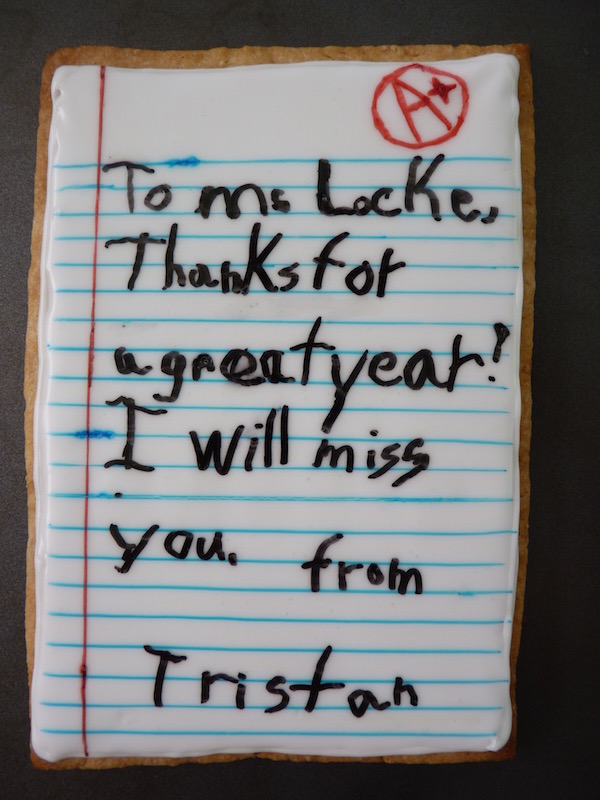 A+
To ms Locke,
Thanks for
a great year!
I will miss
you. from
Tristan